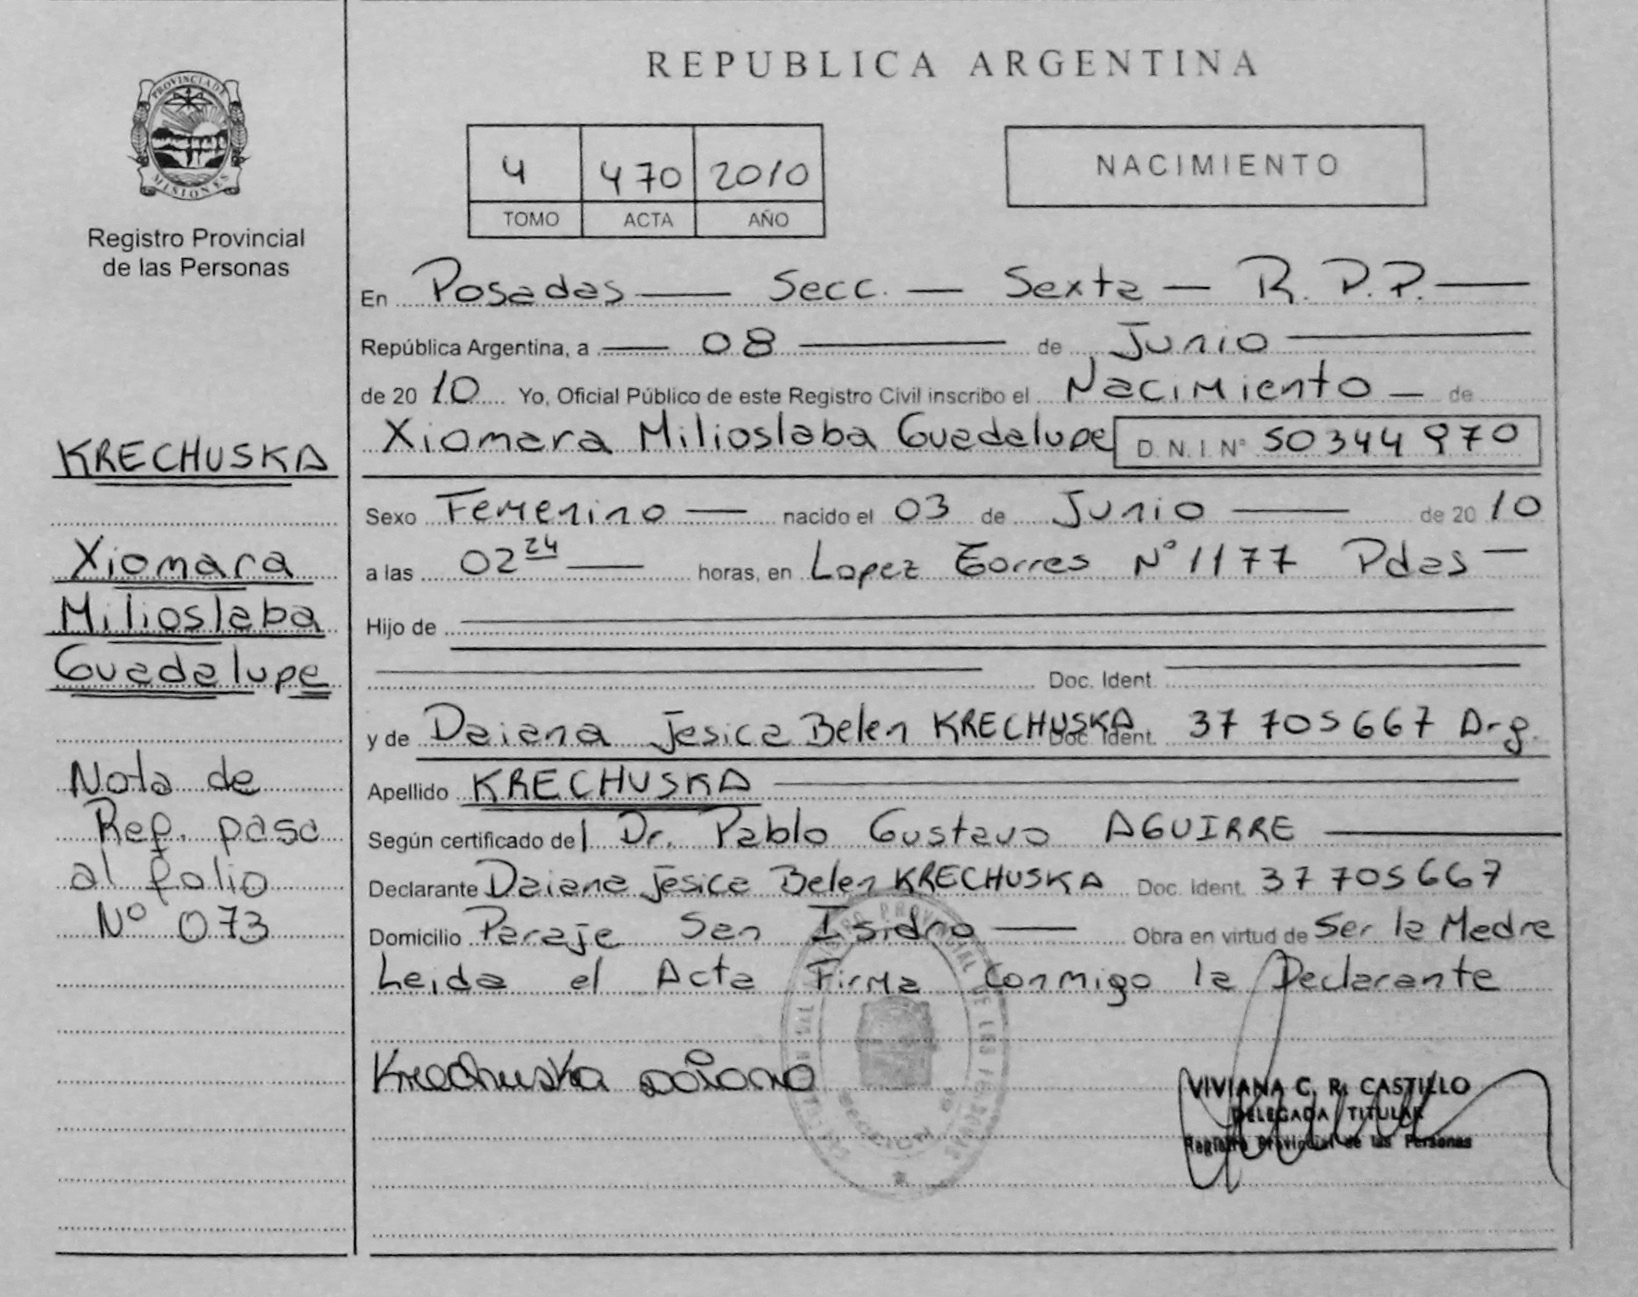 REPUBLICA ARGENTINA
PROVINCIA DE
MISIONES
Registro Provincial
de las Personas
4 470 2010
TOMO ACTA AÑO
NACIMIENTO
En Posadas — Secc. — Sexta — R. P. P. —
República Argentina, a — 08 — de Junio —
de 2010 Yo, Oficial Público de este Registro Civil inscribo el Nacimiento — de
Xiomara Milioslaba Guadalupe D.N.I. N° 50344970
Sexo Femenino — nacido el 03 de Junio — de 2010
a las 02 24 — horas, en Lopez Torres N° 1177 Pdas —
Hijo de
Doc. Ident.
y de Daiana Jesica Belen KRECHUSKA Doc. Ident. 37 705 667 Arg.
Apellido KRECHUSKA
Según certificado del Dr. Pablo Gustavo AGUIRRE —
Declarante Daiana Jesica Belen KRECHUSKA Doc. Ident. 37 705 667
Domicilio Paraje San Isidro — Obra en virtud de Ser la Madre
Leida el Acta Firma Conmigo la Declarante
Krechuska Daiana
VIVIANA C. R. CASTILLO
DELEGADA TITULAR
Registro Provincial de las Personas
KRECHUSKA
Xiomara
Milioslaba
Guadalupe
Nota de
Ref. pasa
al folio
N° 073